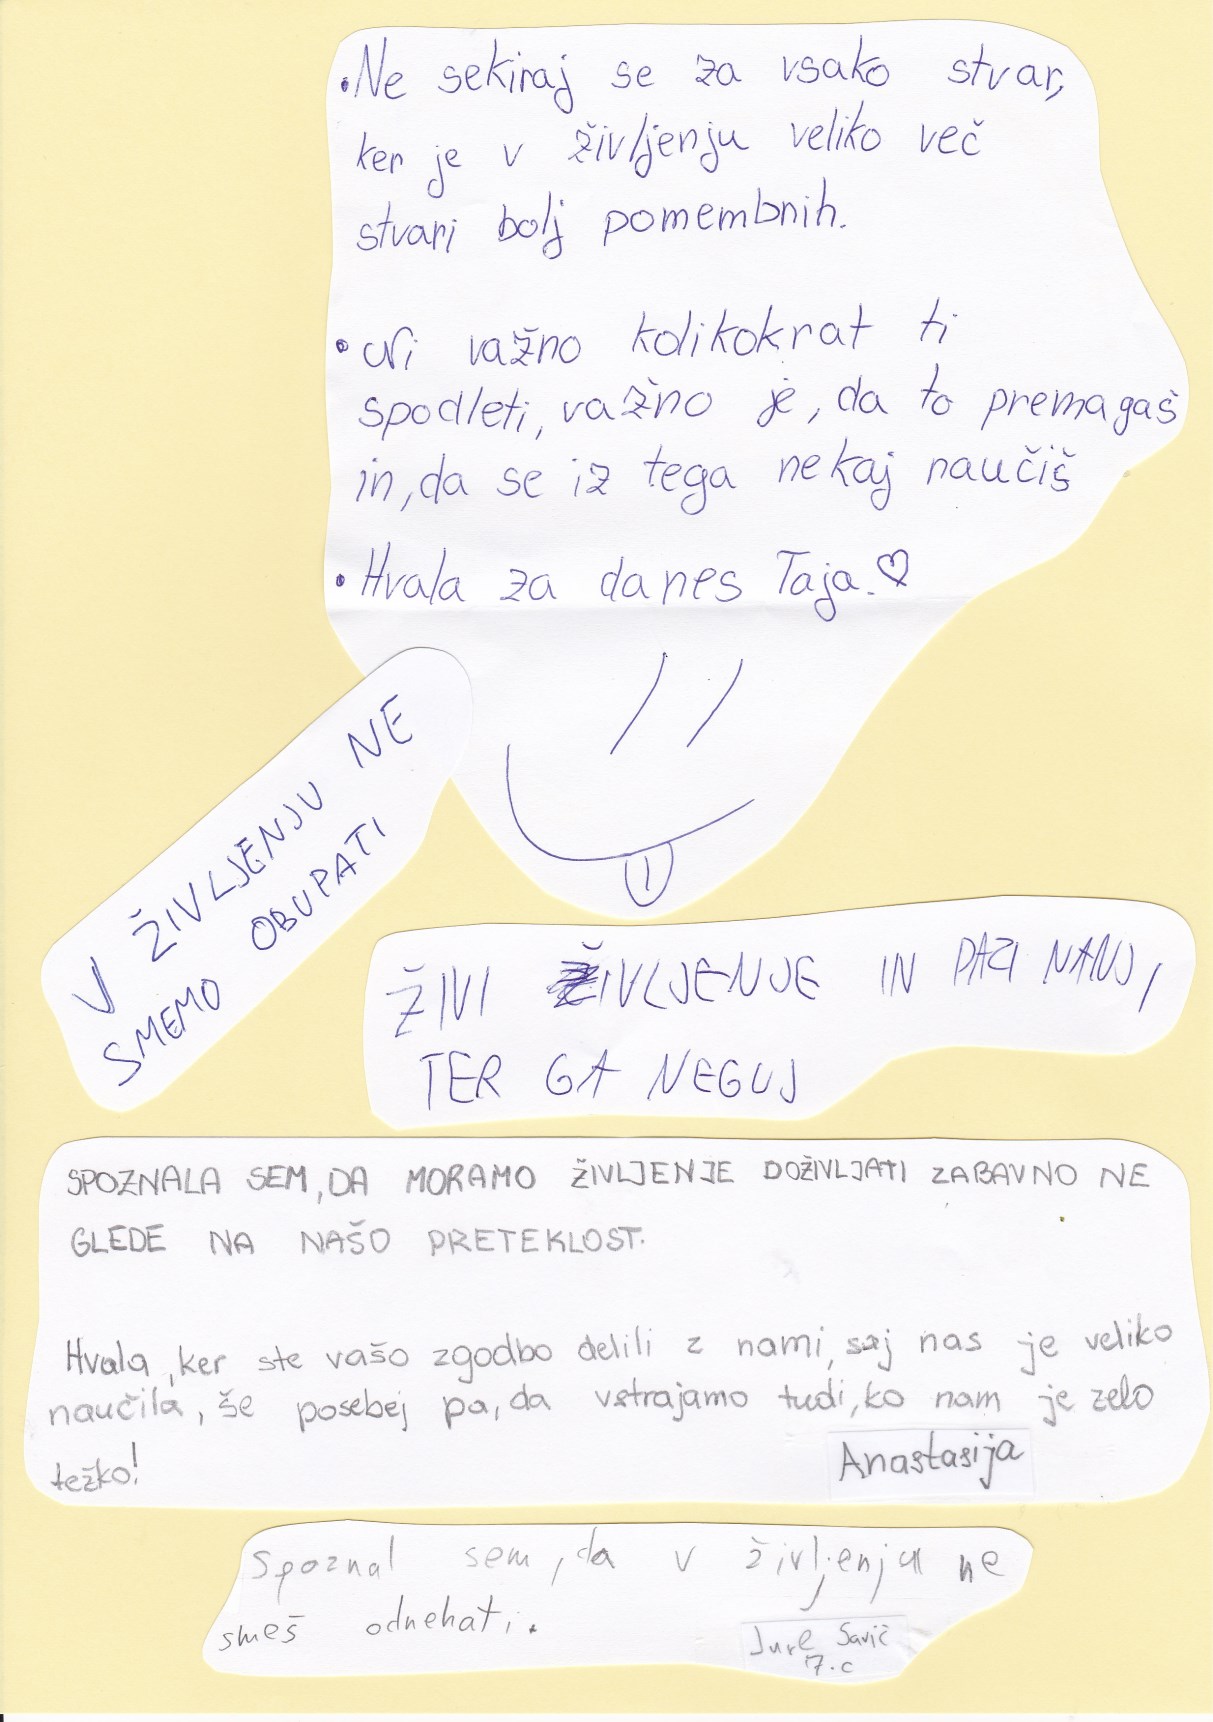 • Ne sekiraj se za vsako stvar,
ker je v življenju veliko več
stvari bolj pomembnih.
• Ni važno kolikokrat ti
spodleti, važno je, da to premagaš
in, da se iz tega nekaj naučiš
• Hvala za danes Taja. ♡
V ŽIVLJENJU NE
SMEMO OBUPATI
ŽIVI ŽIVLJENJE IN PAZI NANJ,
TER GA NEGUJ
SPOZNALA SEM, DA MORAMO ŽIVLJENJE DOŽIVLJATI ZABAVNO NE
GLEDE NA NAŠO PRETEKLOST.
Hvala, ker ste vašo zgodbo delili z nami, saj nas je veliko
naučila, še posebej pa, da vstrajamo tudi, ko nam je zelo
težko!
Anastasija
Spoznal sem, da v življenju ne
smeš odnehati.
Jure Savič
7.c